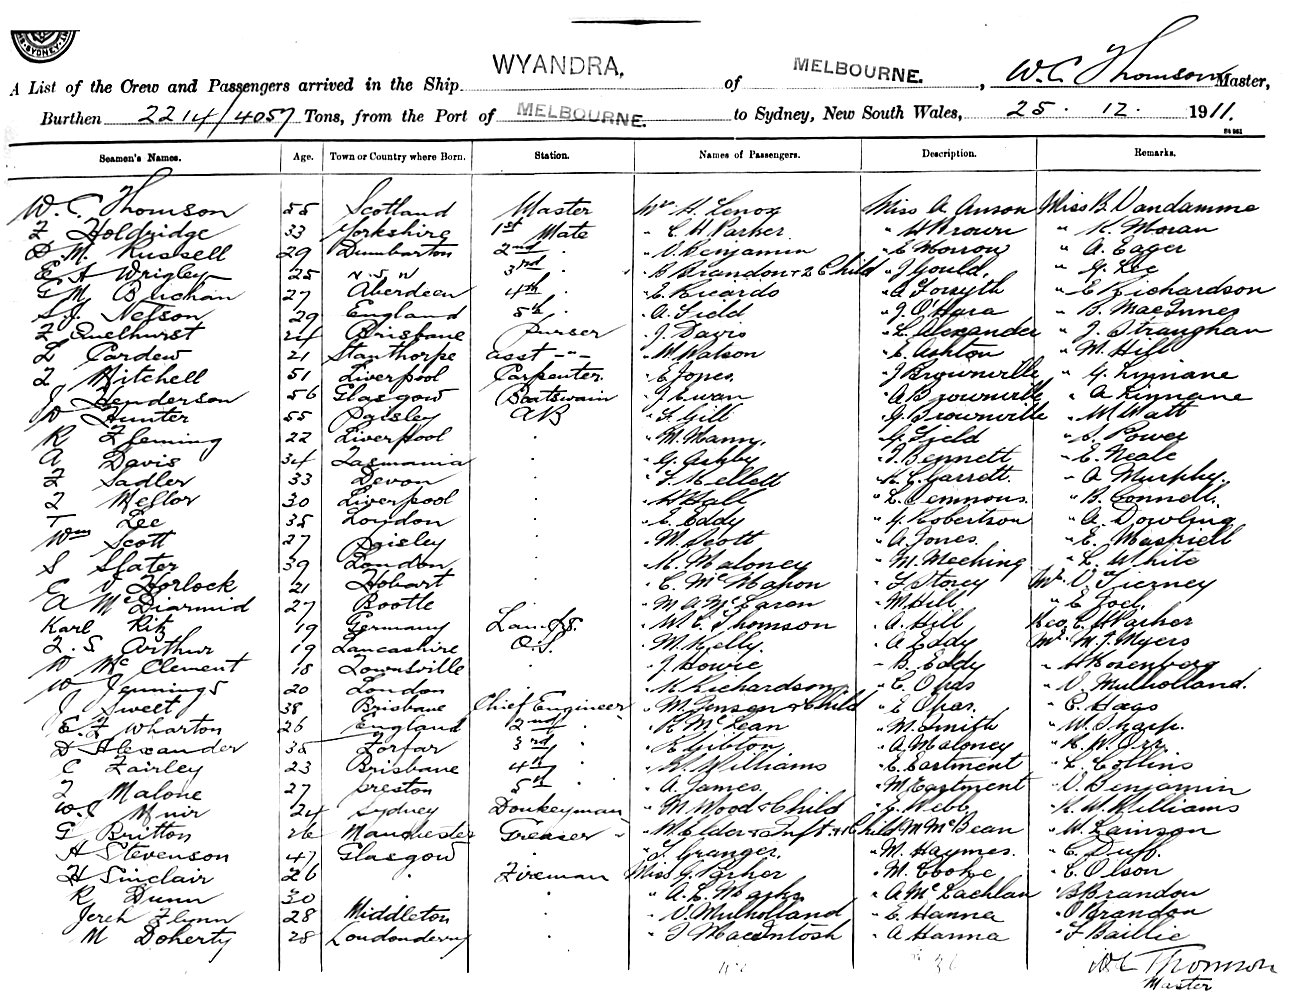 SYDNEY
WYANDRA. MELBOURNE. W.C. Thomson
A List of the Crew and Passengers arrived in the Ship of , Master,
Burthen 2214/4057 Tons, from the Port of MELBOURNE. to Sydney, New South Wales, 25. 12. 1911.
Seamen's Names. Age. Town or Country where Born. Station. Names of Passengers. Description. Remarks.
W. C. Thomson 55 Scotland Master Mrs H. Lenox Miss A Anson Miss B Vandamme
F Holdridge 33 Yorkshire 1st Mate " C H Parker " W Brown " K. Moran
D M. Russell 29 Dumbarton 2nd " " V Benjamin " E Morrow " A. Eager
E A Wrigley 25 N.S.W 3rd " " B Brandon & 2 Child " J Gould. " G. Lee
G M Buchan 27 Aberdeen 4th " " E. Ricardo " A Forsyth " E Richardson
S.J. Nelson 29 England 5th " " A. Field " J. O'Hara " B. MacInnes
F Quelhurst 24 Brisbane Purser " J. Davis " L. Alexander " J. Straughan
L Cardew 21 Stanthorpe asst -"- " M Watson " E. Ashton " M. Hill
F Mitchell 51 Liverpool Carpenter " E Jones. " J Brownville " G. Linnane
J Henderson 56 Glasgow Boatswain " J Ewan " A Brownville " A. Linnane
W Hunter 55 Paisley AB " F. Gill " G. Brownville " M Watt
R Fleming 22 Liverpool " " M. Mann. " G Field " S. Power
A Davis 34 Tasmania " " G. Ashby " J. Bennett " E. Neale
F Sadler 33 Devon " " F. Mellett " K. C. Garrett. " A Murphy.
F Mellor 30 Liverpool " " H Hall " L. Demnous. " B. Connell.
T Lee 35 London " " E. Eddy " G. Robertson " A. Dowling
Wm Scott 27 Paisley " " M. Scott " A. Jones. " E. Maskiell
S Slater 39 London " " K. Maloney " M. Meching " L. White
E V Horlock 21 Hobart " " C. McMahon " F. Storey Mr. V Tierney
A McDiarmid 27 Bootle " " M A McLaren " M Hill " E Joel
Karl Ritz 19 Germany Lamps. " W. E. Thomson " A. Hill Rev. C H Parker
F. S Arthur 19 Lancashire O.S. " M Kelly " A Eddy Mr. M. J. Myers
W McClement 18 Townsville " " J Howie " B. Eddy " H Rosenberg
W Jennings 20 London " " K Richardson " C. Opas " V. Mulholland.
J Sweet 38 Brisbane Chief Engineer " M Jensen & Child " E Opas. " E. Hags
E. F Wharton 26 England 2nd " " K McLean " M. Smith " W. Sharp.
D Alexander 35 Forfar 3rd " " E Gibton " A. Maloney " K. W. Orr
C Fairley 23 Brisbane 4th " " M Williams " E. Eastment " L. Collins
F Malone 27 Preston 5th " " A. James. " M Eastment " V. Benjamin
W. C Muir 24 Sydney Donkeyman " M Wood & Child " G. Webb " K. W. Williams
G Britton 26 Manchester Greaser " " M. Elder & Inft & Child " M McBean " W. Lainson
A Stevenson 47 Glasgow " " F. Granger. " M. Haymes. " C. Duff.
H Sinclair 26 " Fireman Miss G. Parker " M. Cooke " E Olson
R Dunn 30 " " " A. E. Marks " A McLachlan " B Brandon
Jereh Flynn 28 Middleton " " V. Mulholland " E. Hanna " O Brandon
M Doherty 28 Londonderry " " J MacIntosh " A Hanna " F. Baillie
36
W C Thomson
Master